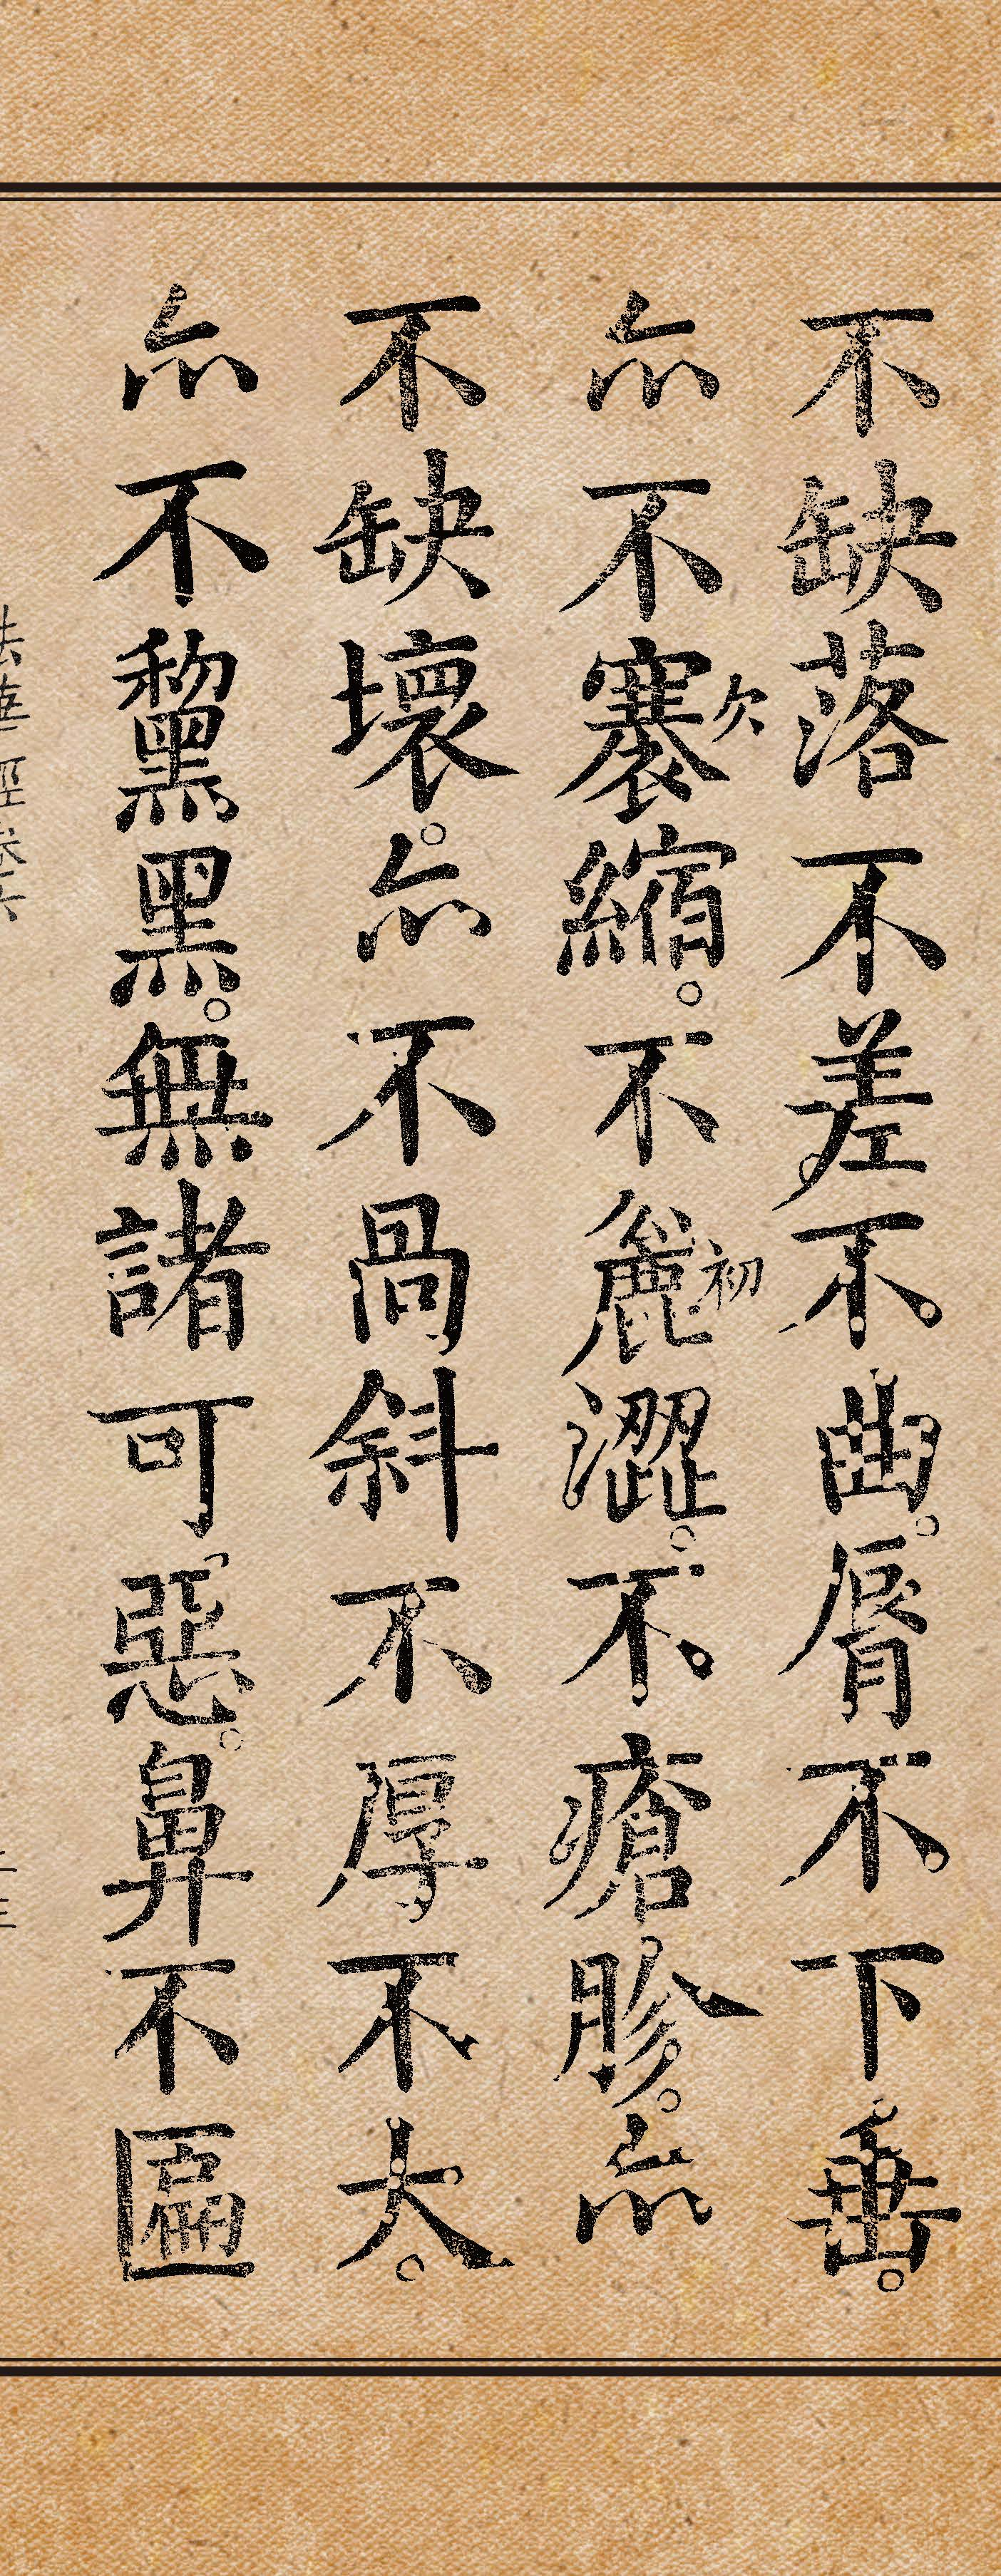 不缺落不差不曲。脣不下垂。
亦不褰縮。不麤澀。不瘡胗。亦
欠
初
不缺壞。亦不咼斜不厚不大。
亦不黧黑。無諸可惡。鼻不匾
法華經卷六